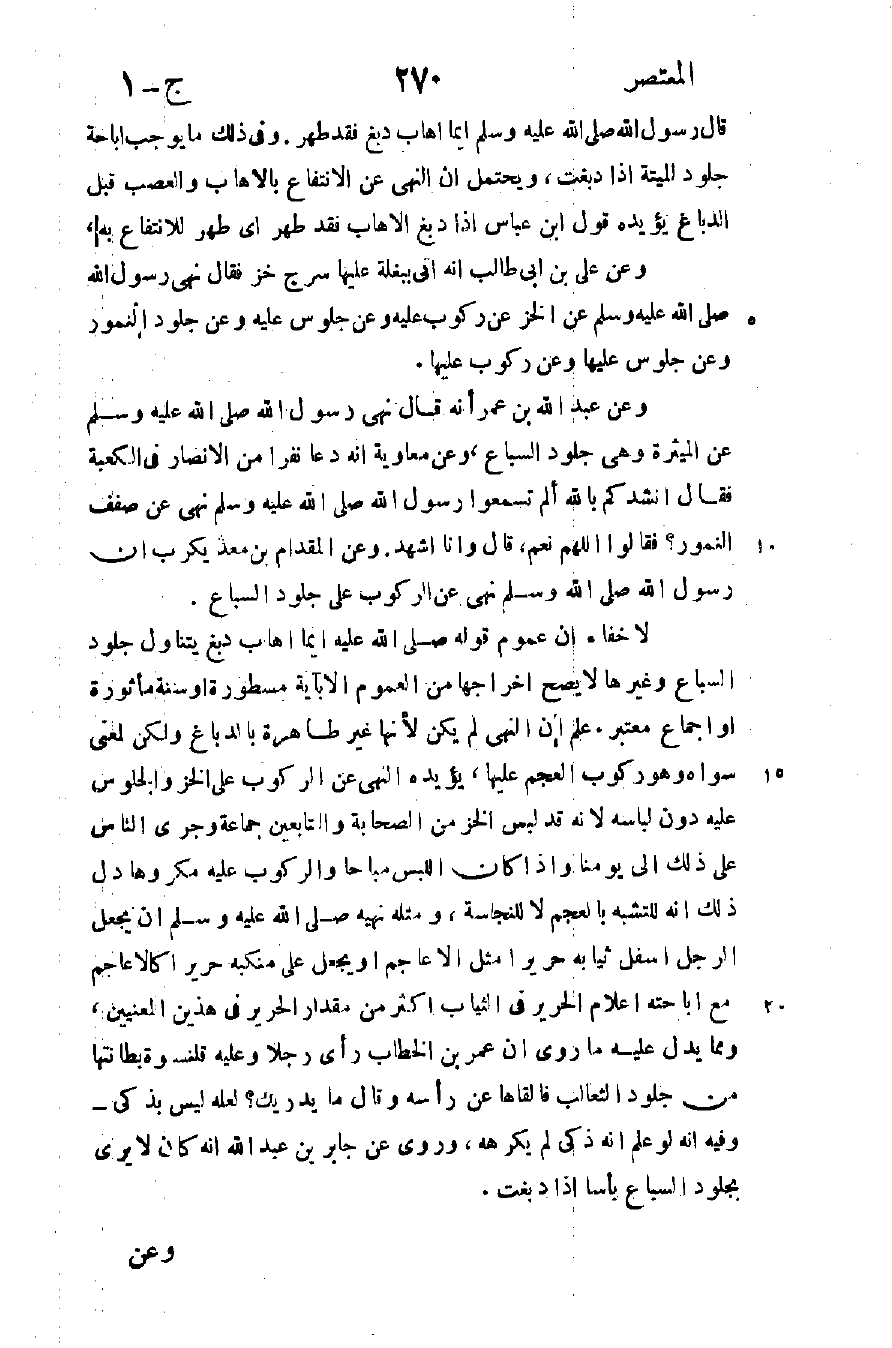 المعتصر ٢٧٠ ج - ١
قال رسول الله صلى الله عليه وسلم ايما اهاب دبغ فقد طهر. وفى ذلك ما يوجب اباحة
جلود الميتة اذا دبغت، ويحتمل ان النهى عن الانتفاع بالاهاب والعصب قبل
الدباغ يؤيده قول ابن عباس اذا دبغ الاهاب فقد طهر اى طهر للانتفاع به،
وعن على بن ابى طالب انه اتى ببغلة عليها سرج خز فقال نهى رسول الله
صلى الله عليه وسلم عن الخز عن ركوب عليه وعن جلوس عليه وعن جلود النمور ٥
وعن جلوس عليها وعن ركوب عليها.
وعن عبد الله بن عمر أنه قال نهى رسول الله صلى الله عليه وسلم
عن الميثرة وهى جلود السباع، وعن معاوية انه دعا نفرا من الانصار فى الكعبة
فقال انشدكم بالله ألم تسمعوا رسول الله صلى الله عليه وسلم نهى عن صفف
النمور؟ فقالوا اللهم نعم، قال وانا اشهد. وعن المقدام بن معديكرب ان ١٠
رسول الله صلى الله وسلم نهى عن الركوب على جلود السباع.
لا خفاء ان عموم قوله صلى الله عليه ايما اهاب دبغ يتناول جلود
السباع وغيرها لا يصح اخراجها من العموم الا بآية مسطورة او سنة مأثورة
او اجماع معتبر. علم ان النهى لم يكن لأنها غير طاهرة بالدباغ ولكن لمعنى
سواه وهو ركوب العجم عليها، يؤيده النهى عن الركوب على الخز والجلوس ١٥
عليه دون لباسه لانه قد لبس الخز من الصحابة والتابعين جماعة وجرى الناس
على ذلك الى يومنا واذا كان اللبس مباحا والركوب عليه مكروها دل
ذلك انه للتشبه بالعجم لا للنجاسة، ومثله نهيه صلى الله عليه وسلم ان يجعل
الرجل اسفل ثيابه حريرا مثل الاعاجم او يجعل على منكبه حريرا كالاعاجم
مع اباحته اعلام الحرير فى الثياب اكثر من مقدار الحرير فى هذين المعنيين، ٢٠
ومما يدل عليه ما روى ان عمر بن الخطاب رأى رجلا وعليه قلنسوة بطانتها
من جلود الثعالب فالقاها عن رأسه وقال ما يدريك؟ لعله ليس بذكى -
وفيه انه لو علم انه ذكى لم يكرهه، وروى عن جابر بن عبد الله انه كان لا يرى
بجلود السباع بأسا اذا دبغت.
وعن